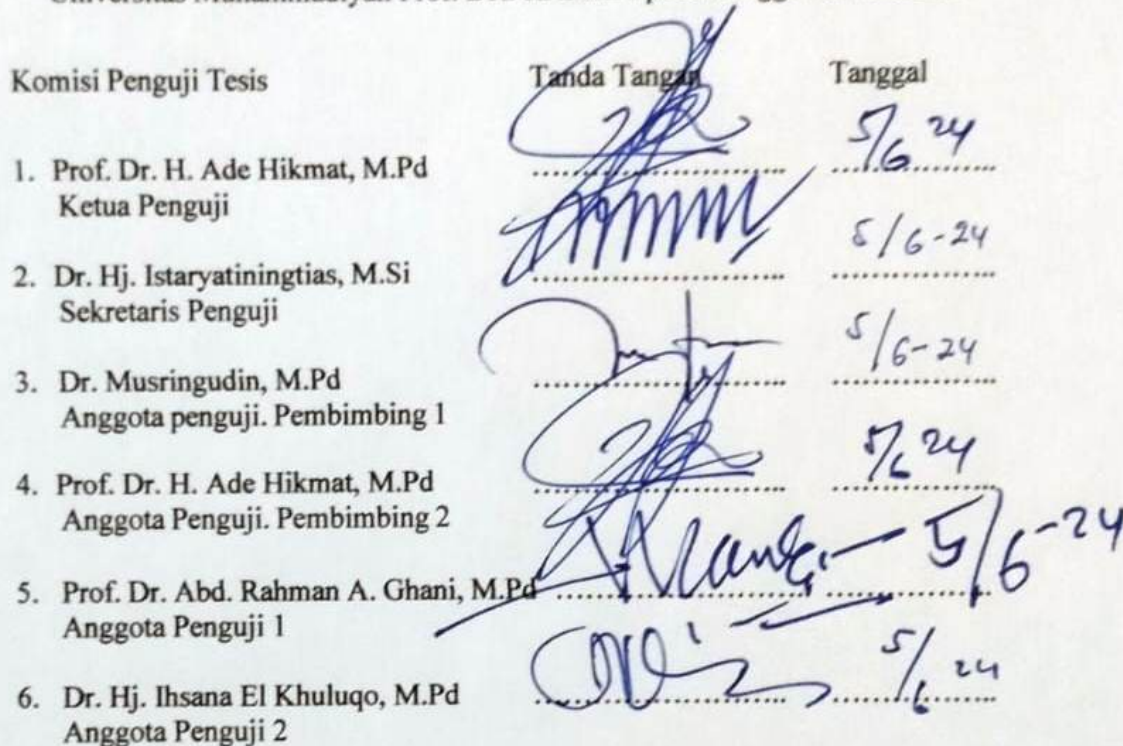 Komisi Penguji Tesis Tanda Tangan Tanggal
1. Prof. Dr. H. Ade Hikmat, M.Pd .................... 5/6 24
Ketua Penguji
2. Dr. Hj. Istaryatiningtias, M.Si .................... 5/6-24
Sekretaris Penguji
3. Dr. Musringudin, M.Pd .................... 5/6-24
Anggota penguji. Pembimbing 1
4. Prof. Dr. H. Ade Hikmat, M.Pd .................... 5/6 24
Anggota Penguji. Pembimbing 2
5. Prof. Dr. Abd. Rahman A. Ghani, M.Pd .................... 5/6-24
Anggota Penguji 1
6. Dr. Hj. Ihsana El Khuluqo, M.Pd .................... 5/6 24
Anggota Penguji 2